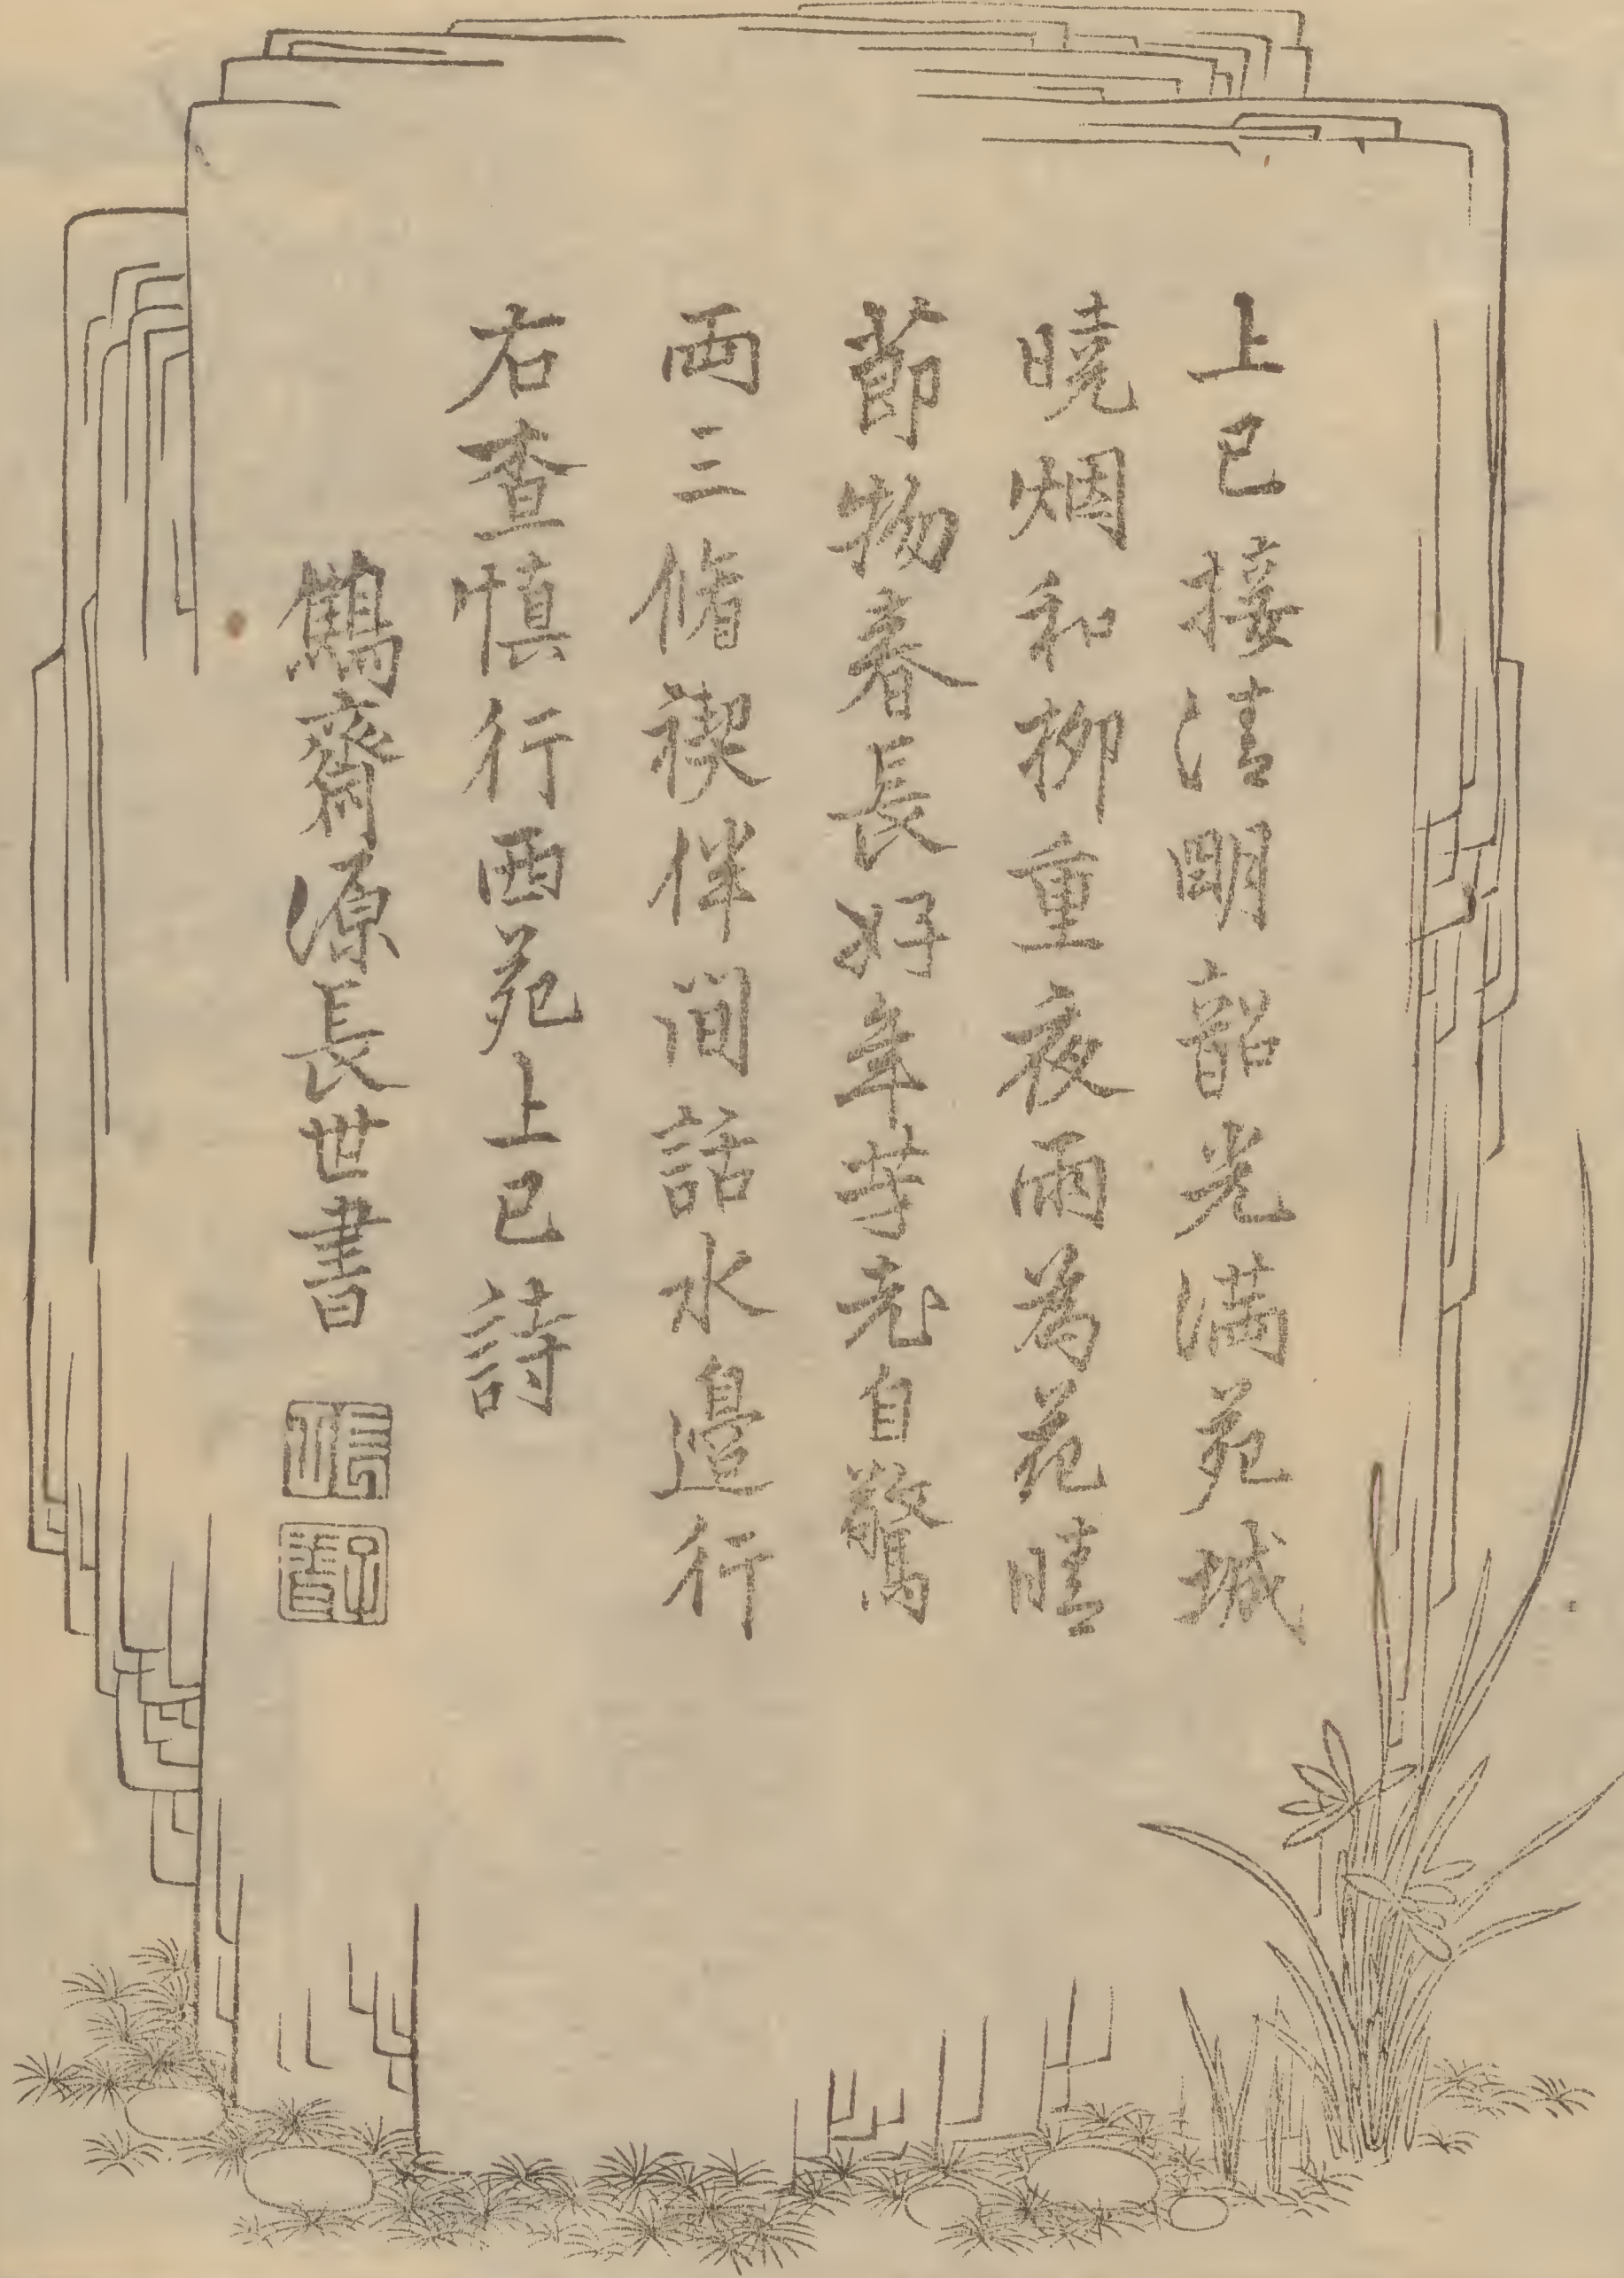 上巳接清明韶光满苑城
曉烟和柳重夜雨為花晴
節物春長好年芳老自驚
両三脩禊伴间話水邊行
右查慎行西苑上巳詩
鶴齋源長世書